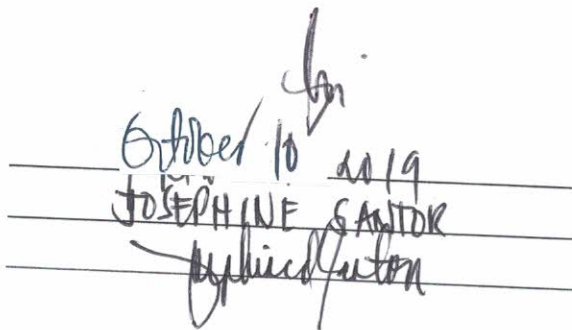 October 10 2019
JOSEPHINE SANTOR